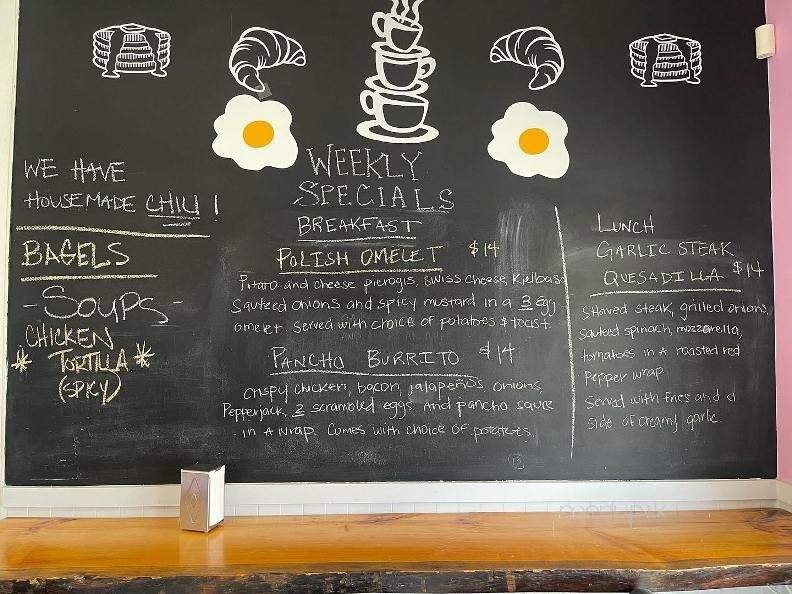 WE HAVE
HOUSEMADE CHILI!
BAGELS
-SOUPS-
CHICKEN
* TORTILLA *
(SPICY)
WEEKLY
SPECIALS
BREAKFAST
POLISH OMELET $14
Potato and cheese pierogis, swiss cheese, Kielbasa
Sauteed onions and spicy mustard in a 3 egg
omelet. Served with choice of potatoes & toast.
PANCHO BURRITO $14
Crispy chicken, bacon, jalapeños, onions
Pepperjack, 2 scrambled eggs and pancho sauce
in a wrap. Comes with choice of potatoes.
LUNCH
GARLIC STEAK
QUESADILLA $14
Shaved steak, grilled onions,
sauteed spinach, mozzarella,
tomatoes in a roasted red
Pepper wrap
Served with fries and a
side of creamy garlic